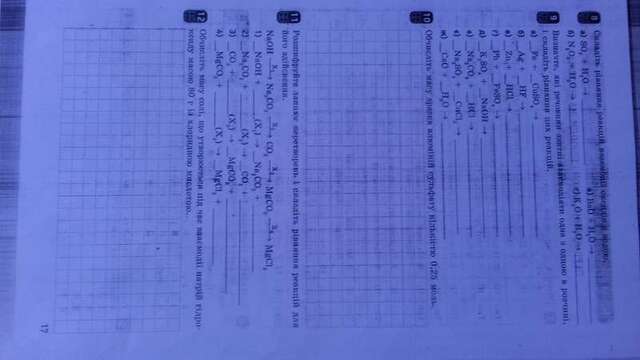 8 Складіть рівняння реакцій взаємодії оксидів з водою.
а) SO₃ + H₂O →
в) BaO + H₂O →
б) N₂O₅ + H₂O →
г) K₂O + H₂O →
9 Визначте, які речовини здатні взаємодіяти одна з одною в розчині,
і складіть рівняння цих реакцій.
а) __Fe + __CuSO₄ →
б) __Ag + __HF →
в) __Zn + __HCl →
г) __Pb + __FeSO₄ →
д) __K₂SO₄ + __NaOH →
е) __Na₂CO₃ + __HCl →
є) __Na₂SO₄ + __CuCl₂ →
ж) __CuO + __H₂O →
10 Обчисліть масу зразка алюміній сульфату кількістю 0,25 моль.
11 Розшифруйте ланцюг перетворень і складіть рівняння реакцій для
його здійснення.
NaOH —X₁→ Na₂CO₃ —X₂→ CO₂ —X₃→ MgCO₃ —X₄→ MgCl₂
1) __NaOH + ____ (X₁) → __Na₂CO₃ +
2) __Na₂CO₃ + ____ (X₂) → __CO₂ +
3) __CO₂ + ____ (X₃) → __MgCO₃ +
4) __MgCO₃ + ____ (X₄) → __MgCl₂ +
12 Обчисліть масу солі, що утворюється під час взаємодії натрій гідро-
ксиду масою 80 г із хлоридною кислотою.
17